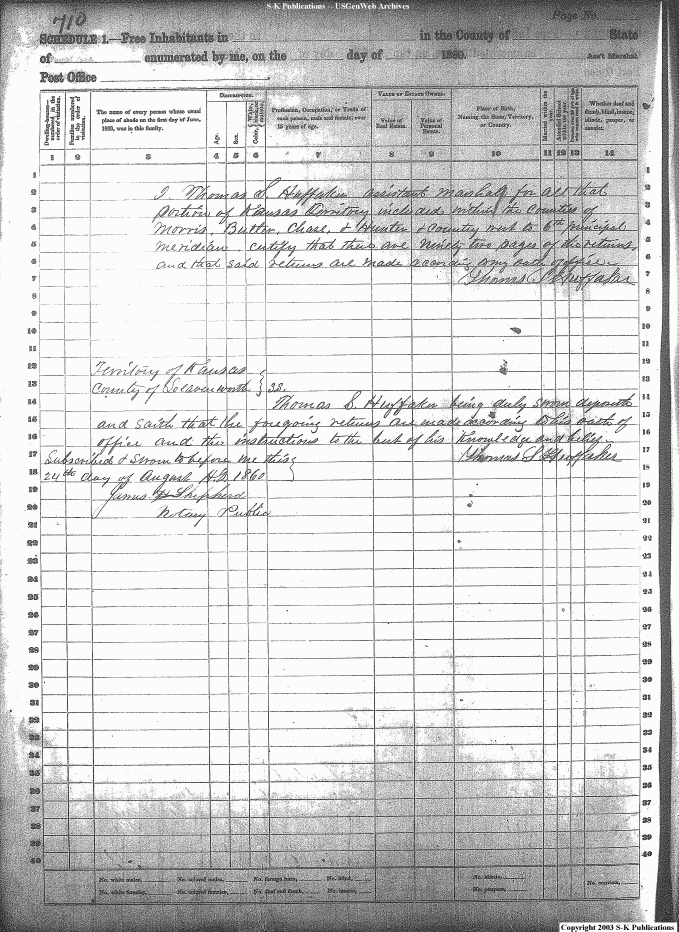 S-K Publications -- USGenWeb Archives
710
Page No.
SCHEDULE 1.—Free Inhabitants in in the County of State
of enumerated by me, on the day of 1860. Ass't Marshal
Post Office
Dwelling-houses—numbered in the order of visitation.
Families numbered in the order of visitation.
The name of every person whose usual place of abode on the first day of June, 1860, was in this family.
Description.
Age.
Sex.
Color, White, black, or mulatto.
Profession, Occupation, or Trade of each person, male and female, over 15 years of age.
Value of Estate Owned.
Value of Real Estate.
Value of Personal Estate.
Place of Birth, Naming the State, Territory, or Country.
Married within the year.
Attended School within the year.
Whether deaf and dumb, blind, insane, idiotic, pauper, or convict.
1 2 3 4 5 6 7 8 9 10 11 12 13 14
1 1
2 I Thomas S. Huffaker assistant marshal for all that 2
3 portion of Kansas Territory included within the Counties of 3
4 Morris, Butler, Chase, & Hunter & country west to 6th principal 4
5 meridian, certify that there are ninety two pages of the returns, 5
6 and that said returns are made according my oath of office. 6
7 Thomas S Huffaker 7
8 8
9 9
10 10
11 11
12 Territory of Kansas 12
13 County of Leavenworth } SS. 13
14 Thomas S. Huffaker being duly sworn deposeth 14
15 and saith that the foregoing returns are made according to his oath of 15
16 office and the instructions to the best of his knowledge and belief. 16
17 Subscribed & Sworn to before me this Thomas S Huffaker 17
18 24th day of August A.D. 1860 18
19 James Shepherd 19
20 Notary Public 20
21 21
22 22
23 23
24 24
25 25
26 26
27 27
28 28
29 29
30 30
31 31
32 32
33 33
34 34
35 35
36 36
37 37
38 38
39 39
40 40
No. white males, No. colored males, No. foreign born, No. blind, No. idiotic, No. convicts,
No. white females, No. colored females, No. deaf and dumb, No. insane, No. paupers,
Copyright 2003 S-K Publications